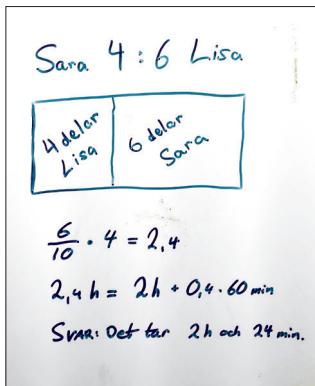 Sara 4 : 6 Lisa
4 delar
Lisa
6 delar
Sara
6/10 · 4 = 2,4
2,4 h = 2h + 0,4 · 60 min
SVAR: Det tar 2h och 24 min.